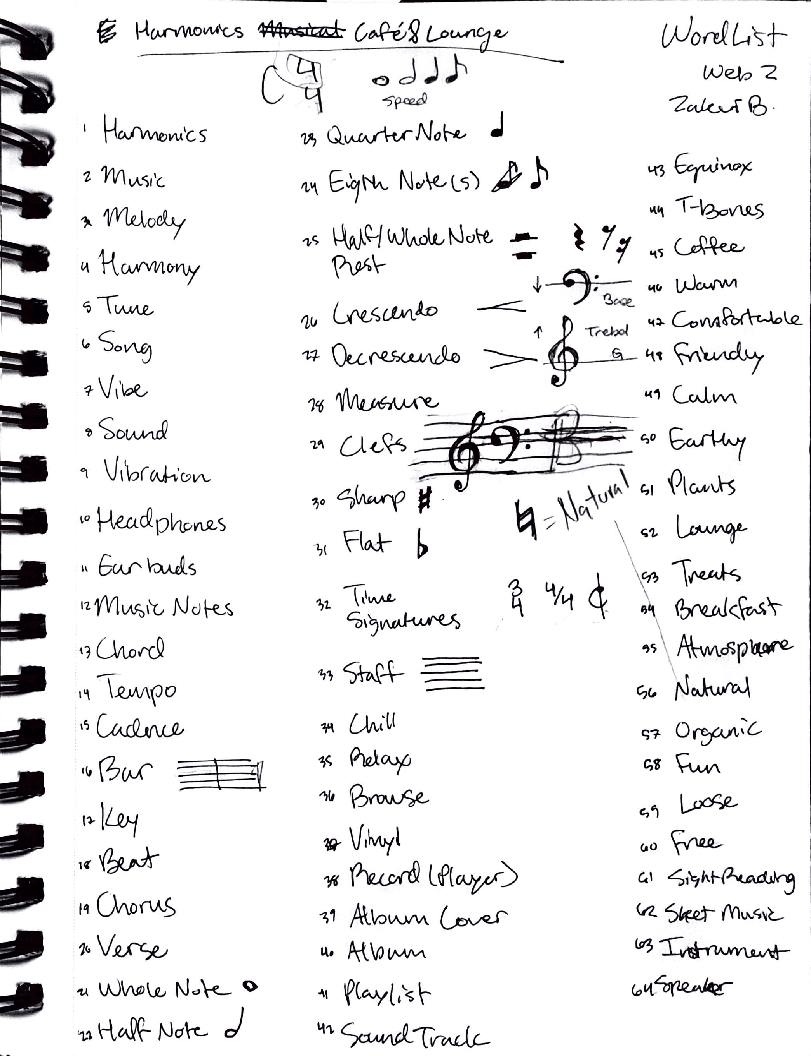 Harmonics Musical Café & Lounge
Word List
Web 2
C 4/4
speed
1 Harmonics
2 Music
3 Melody
4 Harmony
5 Tune
6 Song
7 Vibe
8 Sound
9 Vibration
10 Headphones
11 Earbuds
12 Music Notes
13 Chord
14 Tempo
15 Cadence
16 Bar
17 Key
18 Beat
19 Chorus
20 Verse
21 Whole Note
22 Half Note
23 Quarter Note
24 Eigth Note(s)
25 Half/Whole Note
Rest
26 Crescendo
27 Decrescendo
Base
Trebol
G
28 Measure
29 Clefs
30 Sharp #
♮ = Natural
31 Flat ♭
32 Time
Signatures
3/4 4/4 ¢
33 Staff
34 Chill
35 Relax
36 Browse
37 Vinyl
38 Record (Player)
39 Album Cover
40 Album
41 Playlist
42 Sound Track
43 Equinox
44 T-Bones
45 Coffee
46 Warm
47 Comfortable
48 Friendly
49 Calm
50 Earthy
51 Plants
52 Lounge
53 Treats
54 Breakfast
55 Atmosphere
56 Natural
57 Organic
58 Fun
59 Loose
60 Free
61 Sight Reading
62 Sheet Music
63 Instrument
64 Speaker